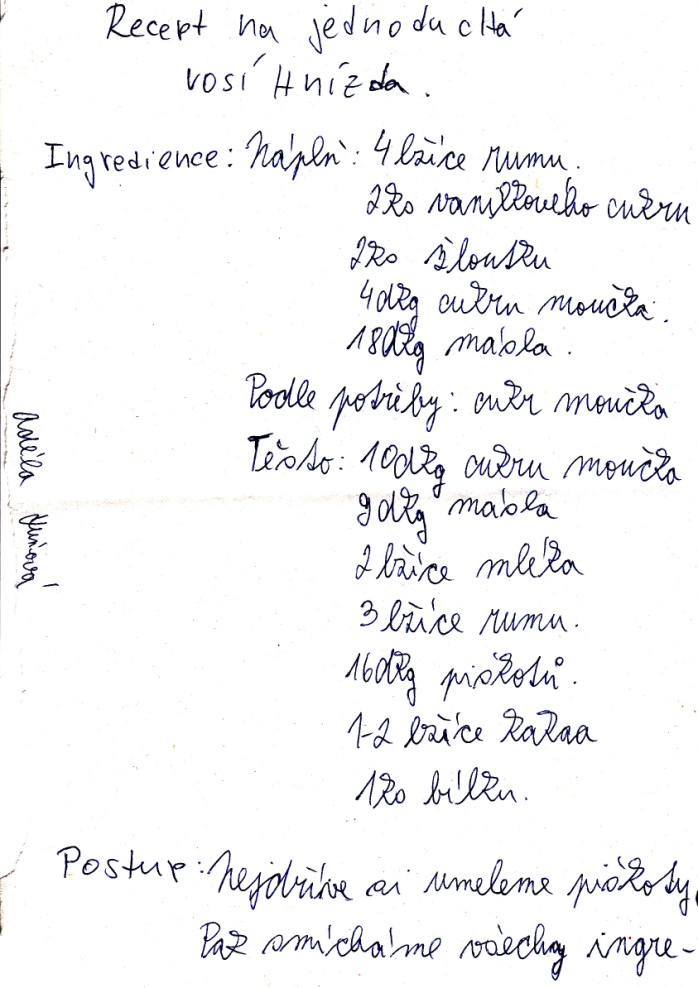 Recept na jednoduchá
vosí Hnízda.
Ingredience: Náplň: 4 lžíce rumu.
2ks vanilkového cukru
2ks žloutku
4dkg cukru moučka.
18dkg másla.
Podle potřeby: cukr moučka
Těsto: 10dkg cukru moučka
9dkg másla
2 lžíce mléka
3 lžíce rumu.
16dkg piškotů.
1-2 lžíce kakaa
1ks bílku.
Postup: Nejdříve si umeleme piškoty,
Pak smícháme všechny ingre-
Adéla